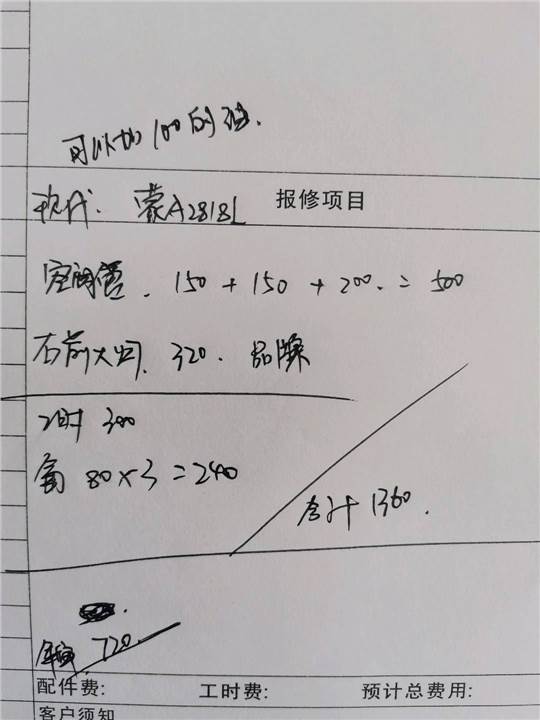 可以加100的油.
现代. 蒙A2818L 报修项目
空调管. 150 + 150 + 200. = 500
右前大灯. 320. 品牌
工时 300
氟 80×3 = 240
合计 1360.
720.
配件费: 工时费: 预计总费用:
客户须知